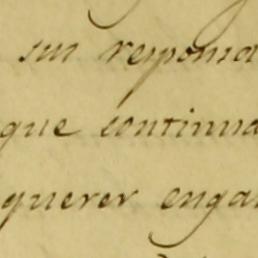 sua responsa
que continua
querer engan